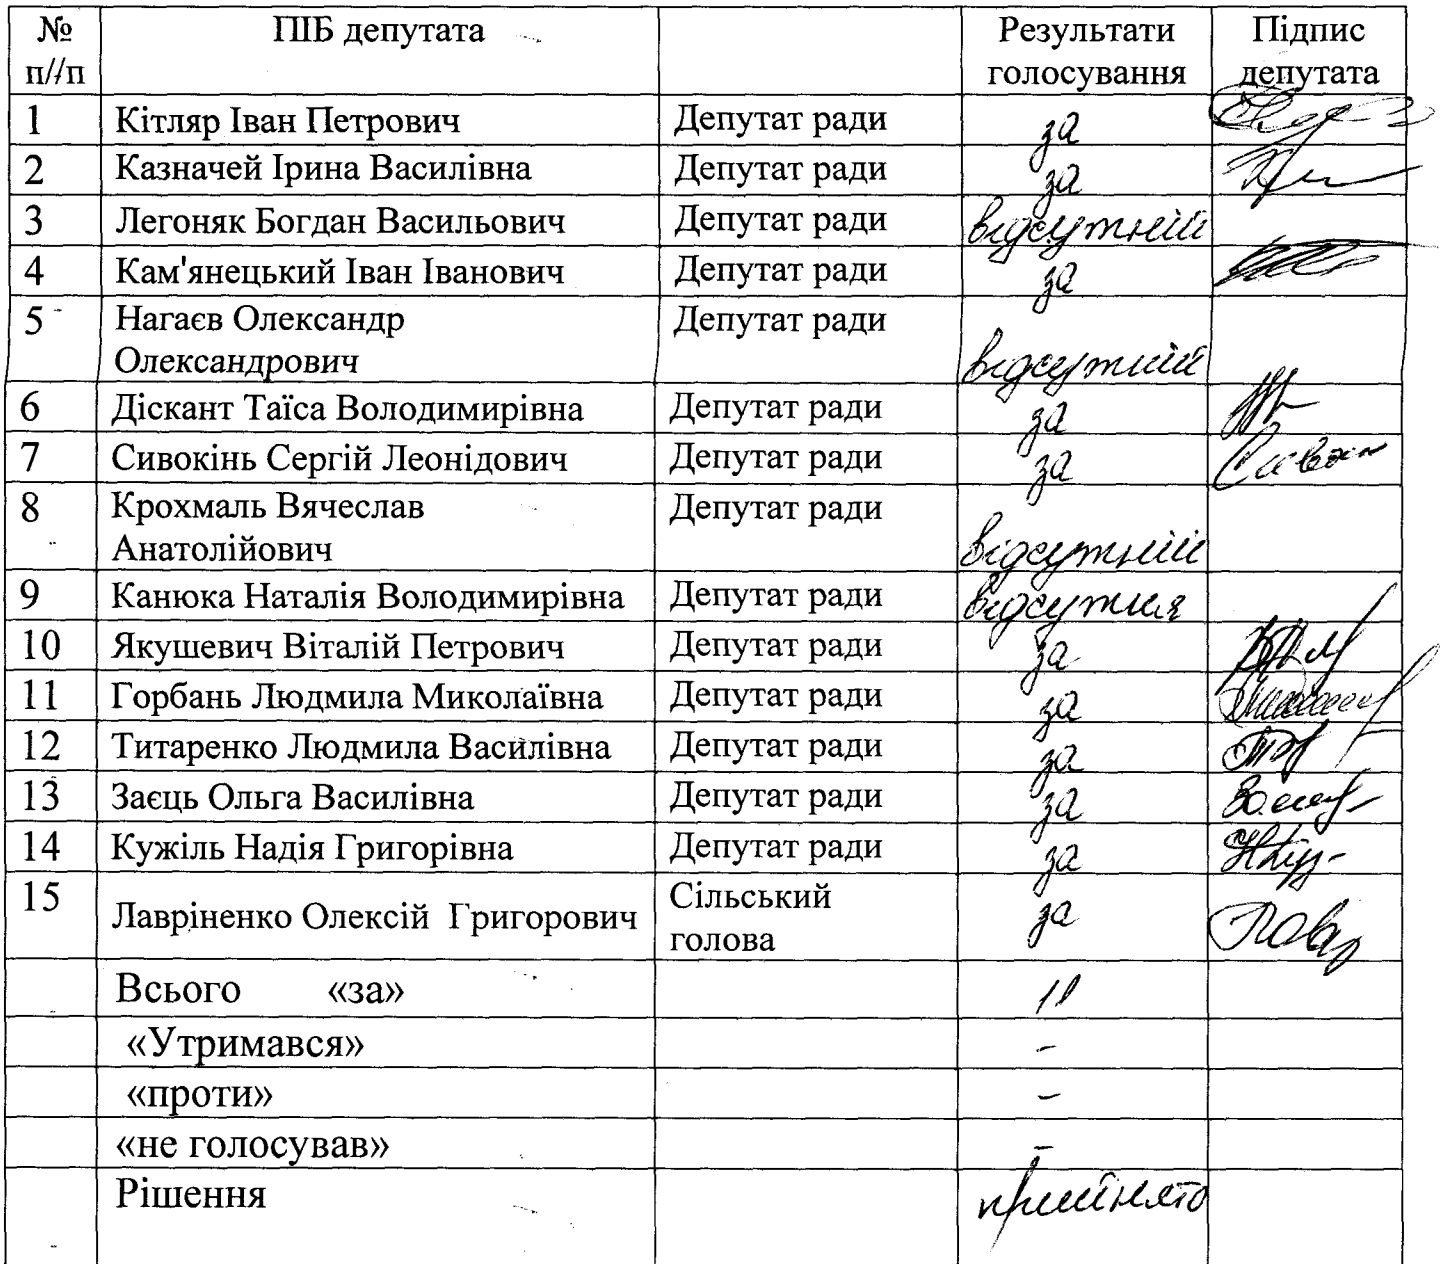 № п//п ПІБ депутата Результати голосування Підпис депутата
1 Кітляр Іван Петрович Депутат ради за
2 Казначей Ірина Василівна Депутат ради за
3 Легоняк Богдан Васильович Депутат ради відсутній
4 Кам'янецький Іван Іванович Депутат ради за
5 Нагаєв Олександр Депутат ради
Олександрович відсутній
6 Діскант Таїса Володимирівна Депутат ради за
7 Сивокінь Сергій Леонідович Депутат ради за
8 Крохмаль Вячеслав Депутат ради
Анатолійович відсутній
9 Канюка Наталія Володимирівна Депутат ради відсутня
10 Якушевич Віталій Петрович Депутат ради за
11 Горбань Людмила Миколаївна Депутат ради за
12 Титаренко Людмила Василівна Депутат ради за
13 Заєць Ольга Василівна Депутат ради за
14 Кужіль Надія Григорівна Депутат ради за
15 Лавріненко Олексій Григорович Сільський голова за
Всього «за» 11
«Утримався» -
«проти» -
«не голосував» -
Рішення прийнято